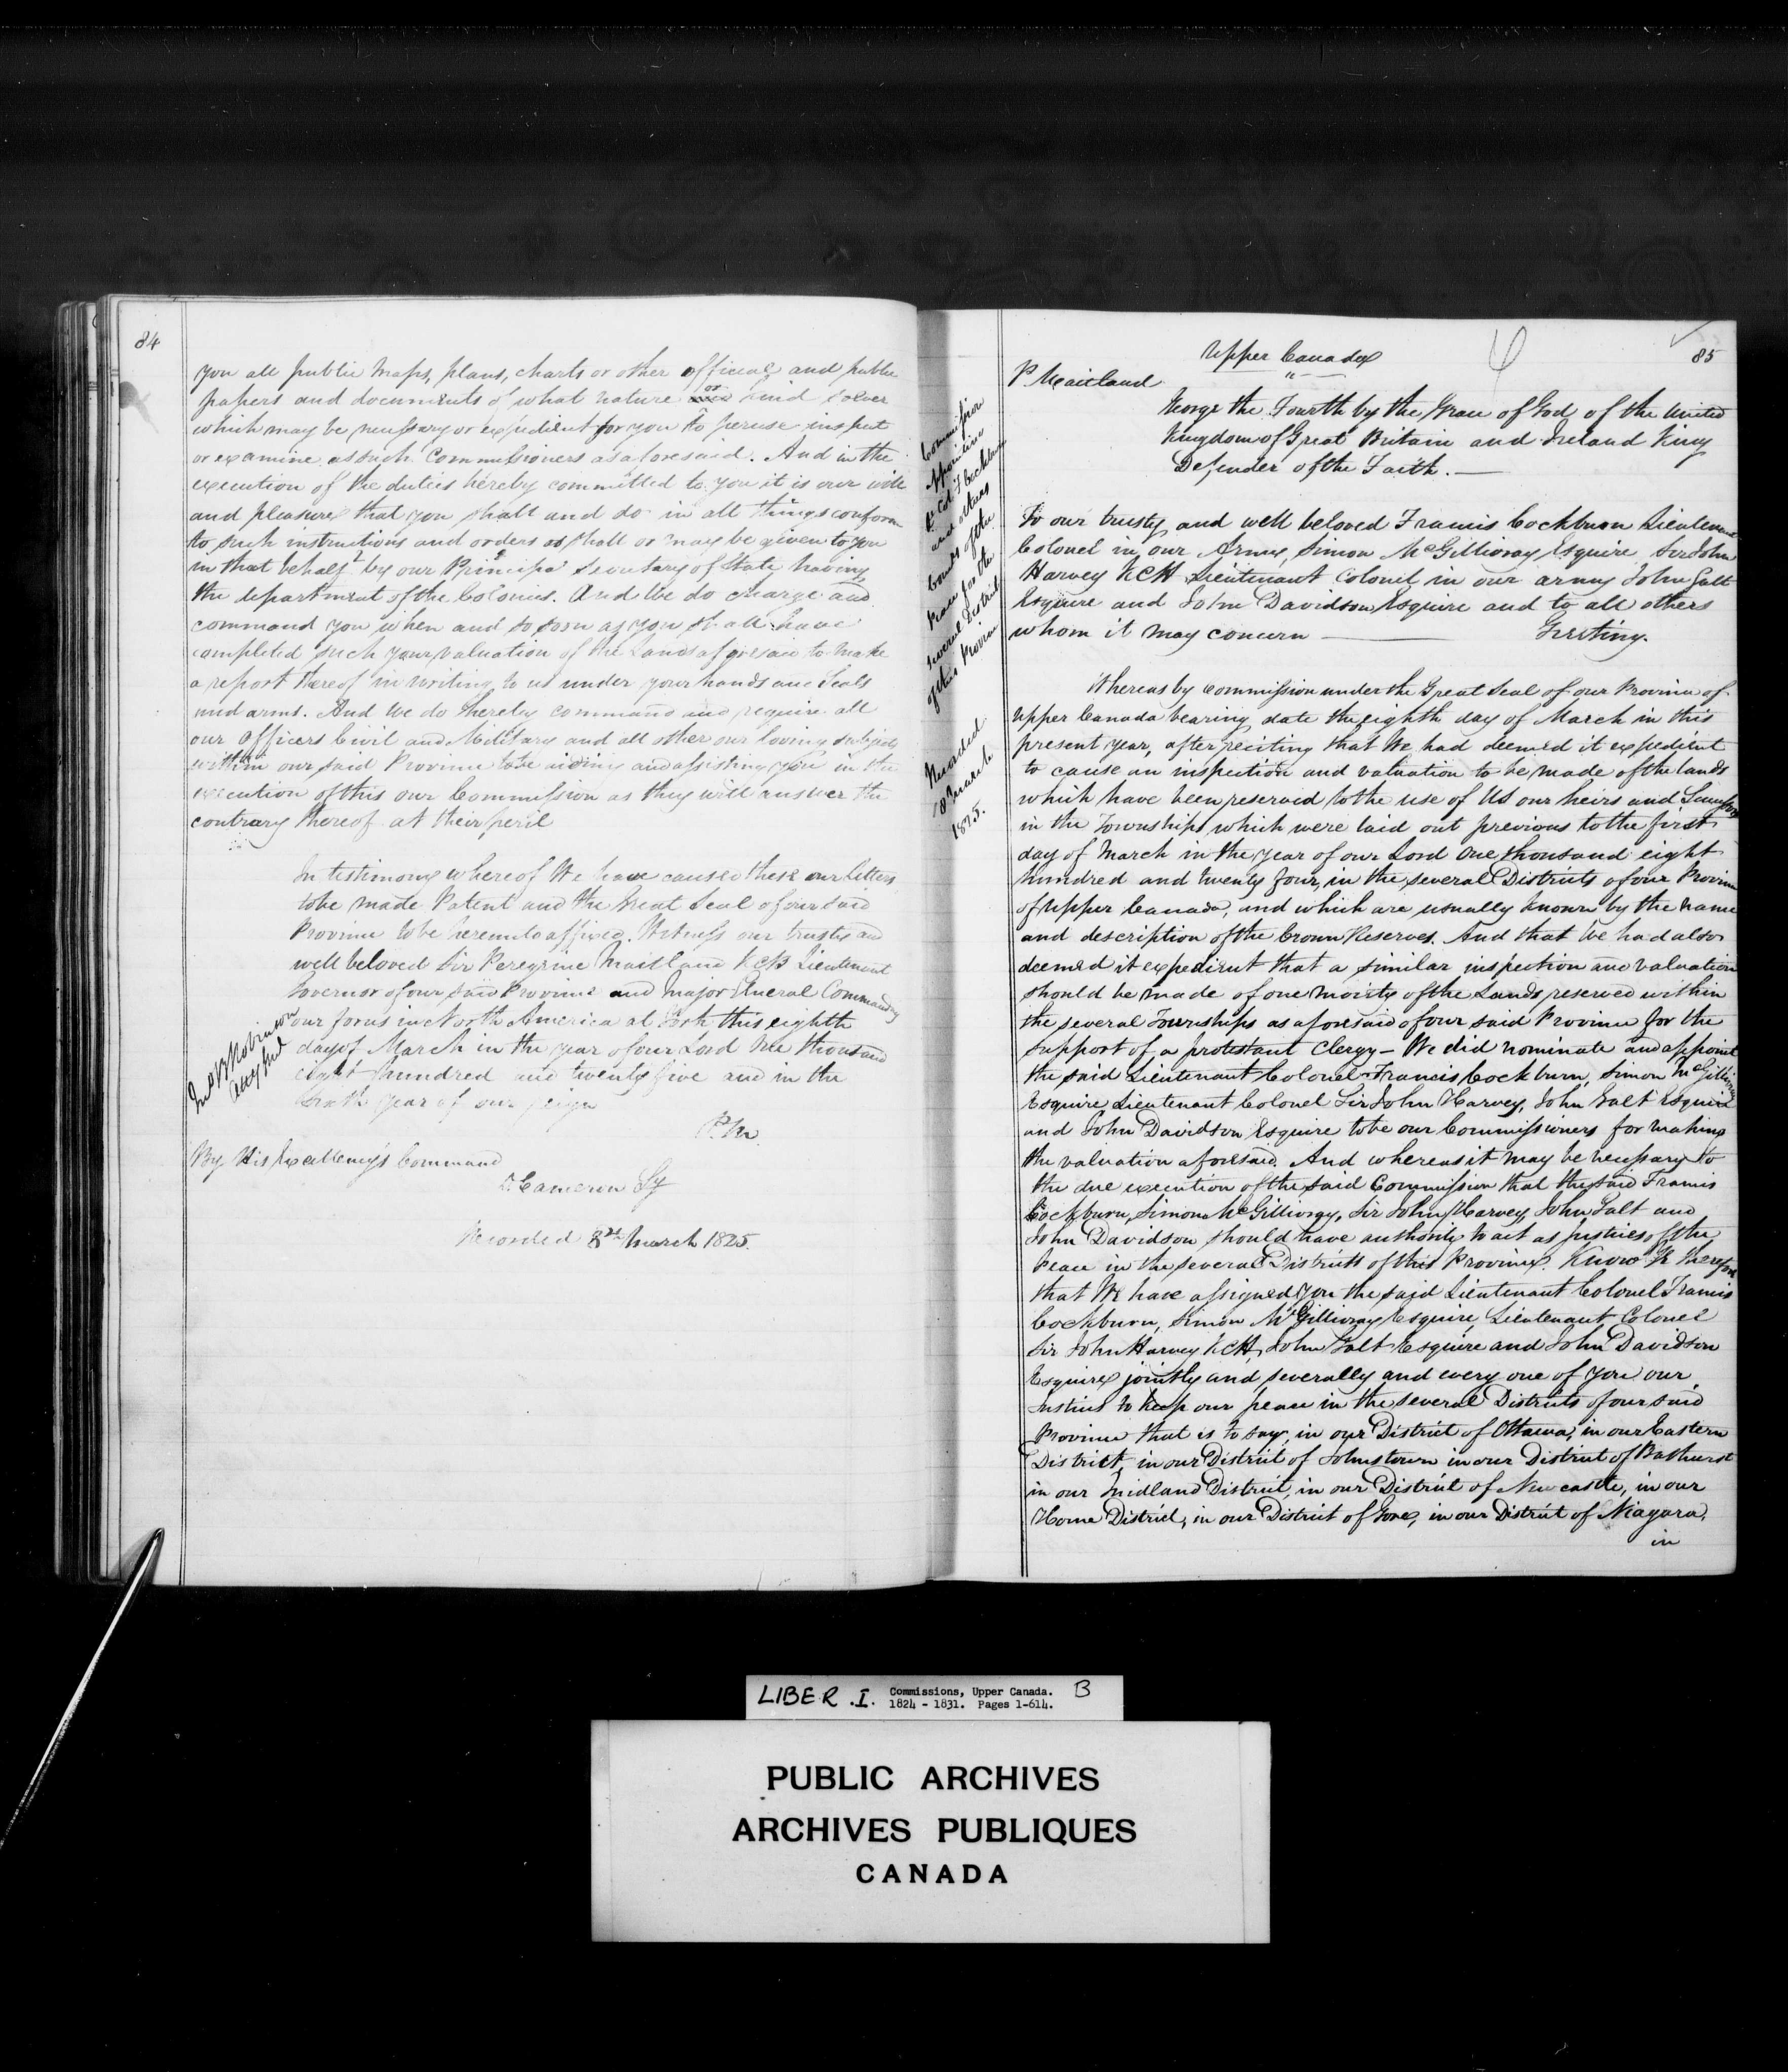 84
you all public Maps, plans, charts or other official and public
papers and documents of what nature or kind soever
which may be necessary or expedient for you to peruse inspect
or examine as such Commissioners as aforesaid. And in the
execution of the duties hereby committed to you it is our will
and pleasure that you shall and do in all things conform
to such instructions and orders as shall or may be given to you
in that behalf by our Principal Secretary of State having
the department of the Colonies. And We do charge and
command you when and so soon as you shall have
completed such your valuation of the Lands aforesaid to make
a report thereof in writing to us under your hands and Seals
and arms. And We do hereby command and require all
our Officers Civil and Military and all other our loving subjects
within our said Province to be aiding and assisting you in the
execution of this our Commission as they will answer the
contrary thereof at their peril
In testimony whereof We have caused these our letters
to be made Patent and the Great Seal of our said
Province to be hereunto affixed. Witness our trusty and
well beloved Sir Peregrine Maitland KCB Lieutenant
Governor of our said Province and Major General Commanding
our forces in North America at York this eighth
day of March in the year of our Lord One thousand
eight hundred and twenty five and in the
Sixth year of our reign
P.M.
Jno B Robinson
Atty Genl
By His Excellency's Command
D Cameron Sy
Recorded 8th March 1825.
85
Upper Canada
P Maitland
George the Fourth by the Grace of God of the United
Kingdom of Great Britain and Ireland King
Defender of the Faith.
Commission
appointing
Lt Col F Cockburn
and others
of the
Peace for the
several Districts
of this Province
Recorded
8th March
1825.
To our trusty and well beloved Francis Cockburn Lieutenant
Colonel in our Army, Simon McGillivray Esquire, Sir John
Harvey KCH Lieutenant Colonel in our army John Galt
Esquire and John Davidson Esquire and to all others
whom it may concern — Greeting.
Whereas by Commission under the Great Seal of our Province of
Upper Canada bearing date the eighth day of March in this
present year, after reciting that We had deemed it expedient
to cause an inspection and valuation to be made of the lands
which have been reserved to the use of Us our heirs and Successors
in the Townships which were laid out previous to the first
day of March in the year of our Lord One thousand eight
hundred and twenty four, in the several Districts of our Province
of Upper Canada, and which are usually known by the name
and description of the Crown Reserves. And that We had also
deemed it expedient that a similar inspection and valuation
should be made of one moiety of the Lands reserved within
the several Townships as aforesaid of our said Province for the
support of a protestant Clergy — We did nominate and appoint
the said Lieutenant Colonel Francis Cockburn, Simon McGillivray
Esquire Lieutenant Colonel Sir John Harvey, John Galt Esquire
and John Davidson Esquire to be our Commissioners for making
the valuation aforesaid. And whereas it may be necessary to
the due execution of the said Commission that the said Francis
Cockburn, Simon McGillivray, Sir John Harvey, John Galt and
John Davidson should have authority to act as Justices of the
Peace in the several Districts of this Province. Know Ye therefore
that We have assigned you the said Lieutenant Colonel Francis
Cockburn, Simon McGillivray Esquire, Lieutenant Colonel
Sir John Harvey KCH, John Galt Esquire and John Davidson
Esquire jointly and severally and every one of you our
Justices to keep our peace in the several Districts of our said
Province that is to say, in our District of Ottawa, in our Eastern
District, in our District of Johnstown in our District of Bathurst
in our Midland District, in our District of Newcastle, in our
Home District, in our District of Gore, in our District of Niagara,
in
LIBER .I. Commissions, Upper Canada. B
1824 - 1831. Pages 1-614.
PUBLIC ARCHIVES
ARCHIVES PUBLIQUES
CANADA